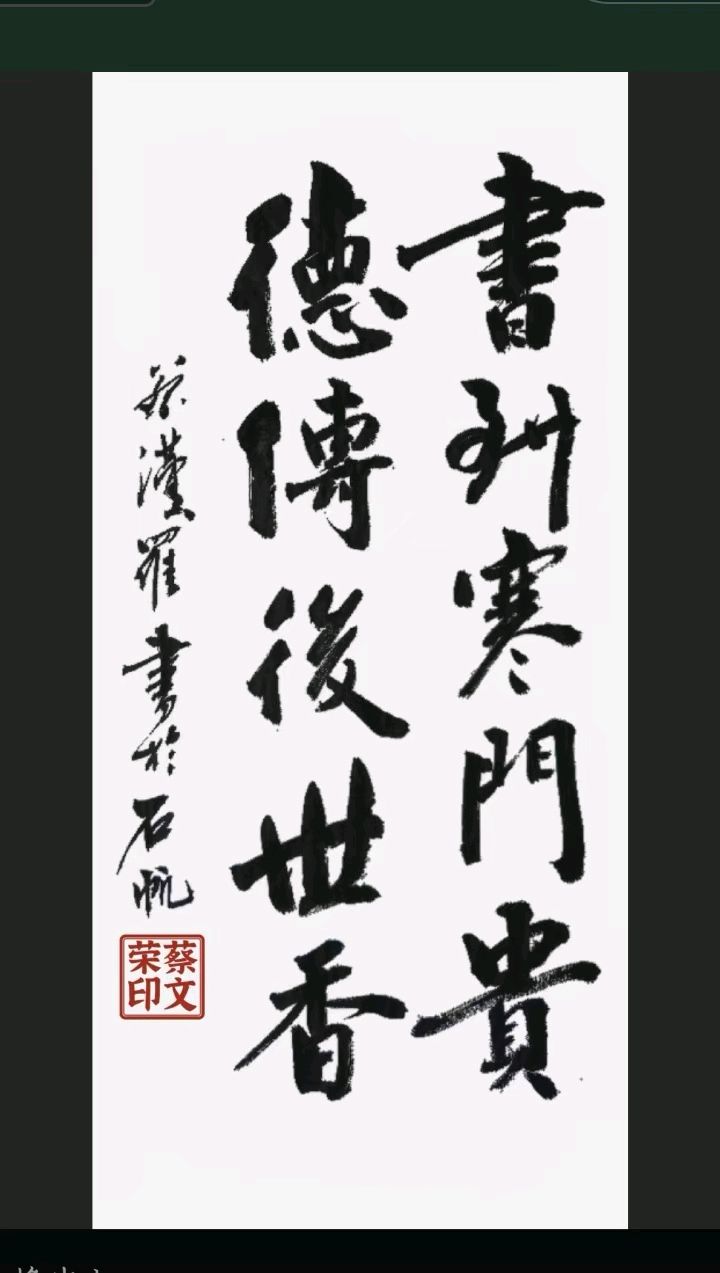 書到寒門貴
德傳後世香
蔡漢羅書於石帆
蔡文
荣印